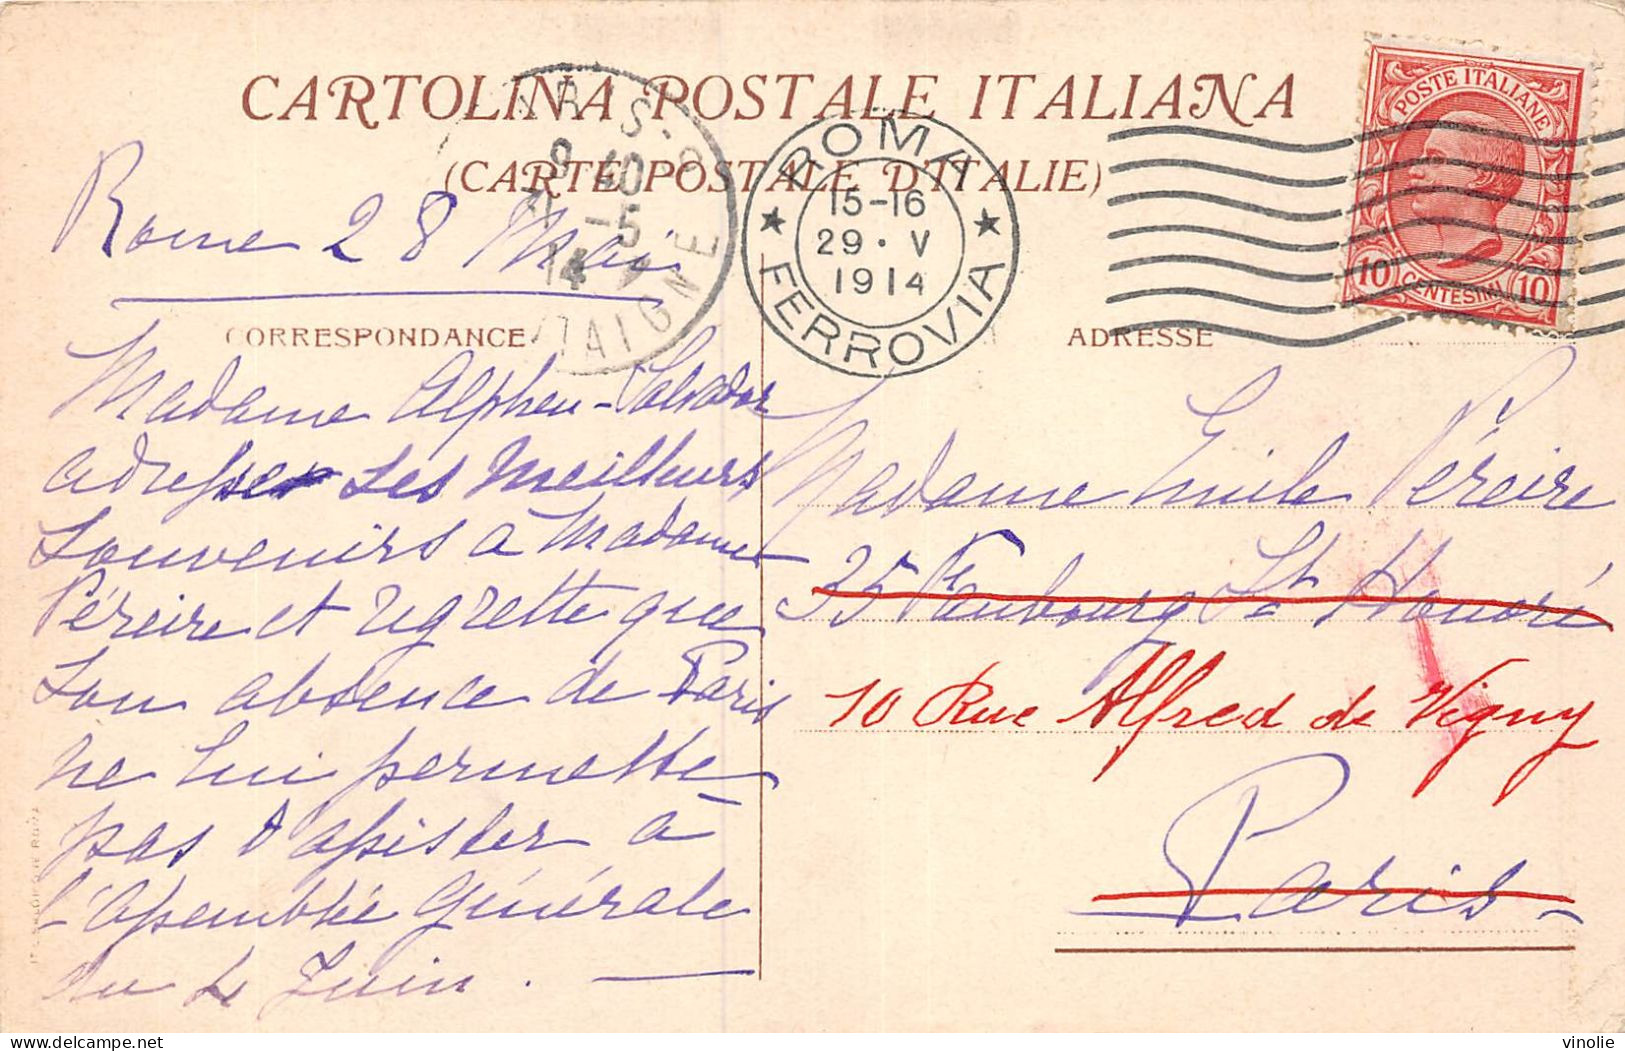 CARTOLINA POSTALE ITALIANA
(CARTE POSTALE D'ITALIE)
POSTE ITALIANE
10 CENTESIMI 10
ROMA
15-16
29 · V
1914
FERROVIA
PARIS
10
-5
14
Rome 28 Mai
CORRESPONDANCE
Madame Alphen-Salvador
adresse Les meilleurs
Souvenirs a Madame
Péreire et regrette que
Son absence de Paris
ne lui permette
pas d'assister à
l'assemblée générale
du 4 Juin.
ADRESSE
Madame Emile Péreire
35 Faubourg St Honoré
10 Rue Alfred de Vigny
Paris
vinolie